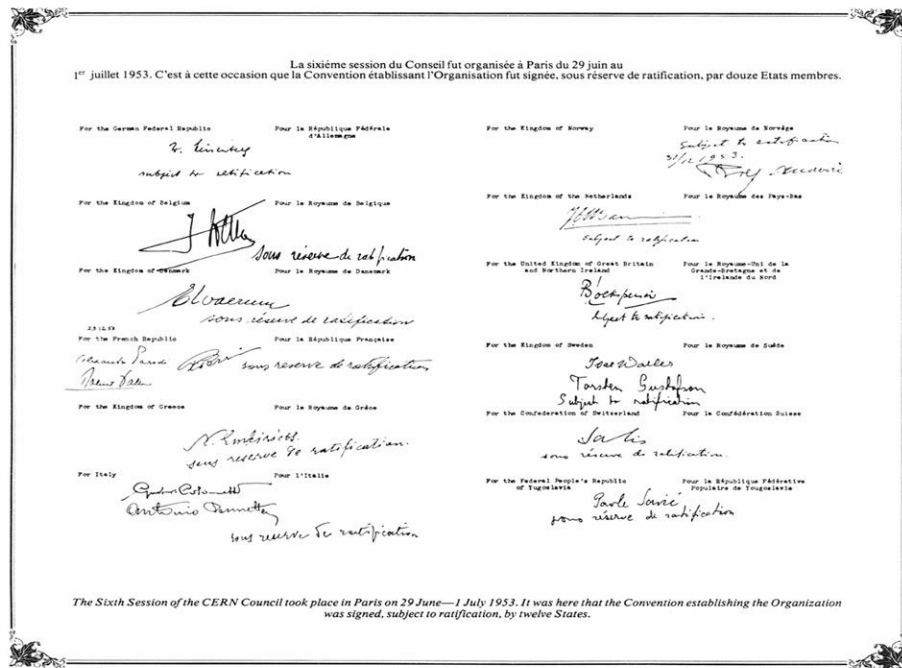 La sixième session du Conseil fut organisée à Paris du 29 juin au
1er juillet 1953. C'est à cette occasion que la Convention établissant l'Organisation fut signée, sous réserve de ratification, par douze Etats membres.
For the German Federal Republic Pour la République Fédérale
d'Allemagne
subject to ratification
For the Kingdom of Belgium Pour le Royaume de Belgique
sous réserve de ratification
For the Kingdom of Denmark Pour le Royaume de Danemark
sous réserve de ratification
23.12.53
For the French Republic Pour la République Française
sous reserve de ratification
For the Kingdom of Greece Pour le Royaume de Grèce
sous reserve de ratification.
For Italy Pour l'Italie
Antonio
sous reserve de ratification
For the Kingdom of Norway Pour le Royaume de Norvège
Subject to ratification
31/12 1953.
For the Kingdom of the Netherlands Pour le Royaume des Pays-Bas
subject to ratification
For the United Kingdom of Great Britain Pour le Royaume-Uni de la
and Northern Ireland Grande-Bretagne et de
l'Irelande du Nord
subject to ratification.
For the Kingdom of Sweden Pour le Royaume de Suède
Ivar Waller
Torsten Gustafson
Subject to ratification
For the Confederation of Switzerland Pour la Confédération Suisse
Salis
sous réserve de ratification.
For the Federal People's Republic Pour la République Fédérative
of Yugoslavia Populaire de Yougoslavie
Pavle Savić
sous réserve de ratification
The Sixth Session of the CERN Council took place in Paris on 29 June—1 July 1953. It was here that the Convention establishing the Organization
was signed, subject to ratification, by twelve States.